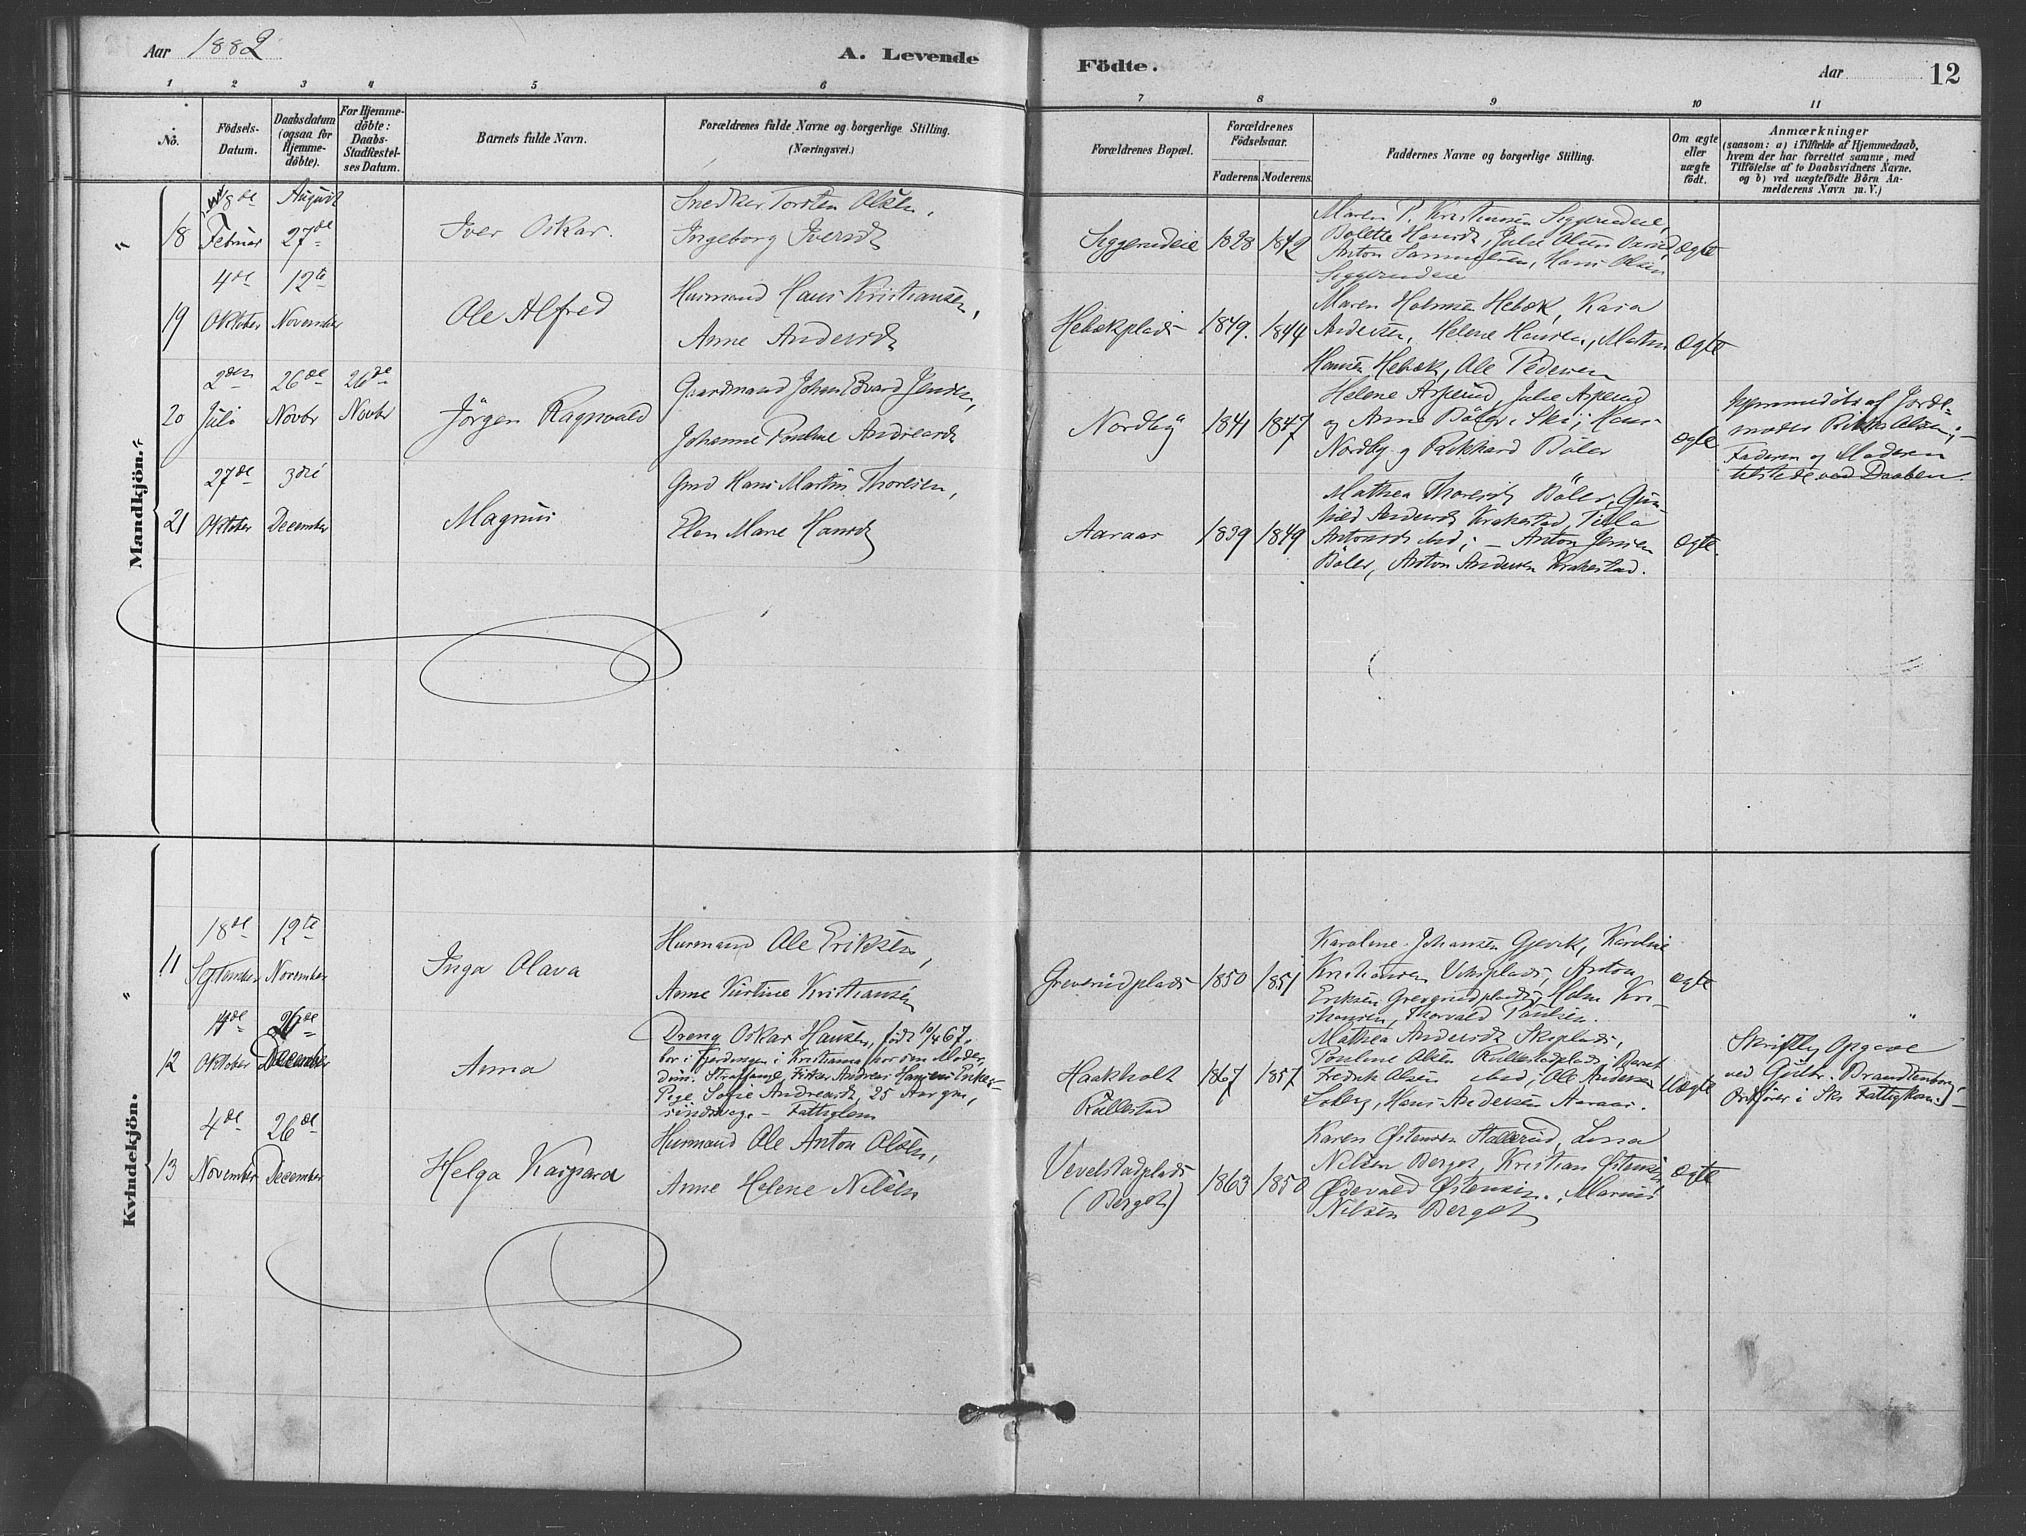 Aar 1882
A. Levende
Födte.
Aar
12
1 2 3 4 5 6 7 8 9 10 11
No.
Födsels-
Datum.
Daabsdatum
(ogsaa for
Hjemme-
döbte).
For Hjemme-
döbte:
Daabs-
Stadfæstel-
ses Datum.
Barnets fulde Navn.
Forældrenes fulde Navne og borgerlige Stilling.
(Næringsvei.)
Forældrenes Bopæl.
Forældrenes
Födselsaar.
Faderens. Moderens.
Faddernes Navne og borgerlige Stilling.
Om ægte
eller
uægte
födt.
Anmærkninger
(saasom: a) i Tilfælde af Hjemmedaab,
hvem der har forrettet samme, med
Tilföielse af to Daabsvidners Navne.
og b) ved uægtefödte Börn An-
melderens Navn m. V.)
Mandkjön.
18
8de
Februar
August
27de
Iver Oskar.
Snedker Torsten Olsen,
Ingeborg Iversdt
Siggerudeie
1828
1842
Maren P. Kristiansen Siggerudeie,
Bolette Hansdt, Julie Olsen
Anton Sammelsen, Hans Olsen
Siggerudeie
Ægte
19
4de
Oktober
12te
November
Ole Alfred
Husmand Hans Kristiansen,
Anne Andersdt
Hebækplads
1849.
1844
Maren Holmsen Hebæk, Kara
Andersen, Helene Hansen, Martin
Hansen Hebæk, Ole Pedersen
Ægte
20
2den
Juli
26de
Novbr
26de
Novbr
Jörgen Ragnvald
Gaardmand Johan Edvard Jensen,
Johanne Pauline Andreasdt
Nordby
1841
1847
Helene Asperud, Julie Asperud
og Anne Böler, Ski; Hans
Nordby og Rikhard Böler
Ægte
Hjemmedöbt af Jorde-
moder Olsen;
Faderen og Moderen
tilstede ved Daaben.
21
27de
Oktober
3die
December
Magnus
Gmd Hans Martin Thoresen,
Elen Marie Hansdt
Aaraas
1839
1849
Mathea Thoresdt Böler, Gun-
hild Andersdt Krakestad, Tilla
Antonsdt ibid; – Anton Jensen
Böler, Anton Andersen Krakestad.
Ægte.
Kvindekjön.
11
18de
September
12te
November
Inga Olava
Husmand Ole Eriksen,
Anne Kirstine Kristiansen
Greverudplads
1850
1851
Karoline Johansen Gjevik, Karoline
Kristiansen Anton
Eriksen Greverudplads, Holm Kri-
stiansen, Thorvald Paulsen.
Ægte
12
Oktober
26de
December
Anna
Dreng Oskar Hansen, född 10/4 67,
bor i Fjerdingen i Kristiania hos sin Moder,
Pige, Sofie Andreasdt, 25 Aar gm,
– Fattiglem
Haakholt
Rullestad
1867
1857
Mathea Andersdt Skiplads,
Pauline Olsen Rullestadplads,
Fredrik Olsen ibid; Ole Andersen
Hans Andersen Aaraas.
Uægte
Skriftlig Opgave
ved Gudbr. Brandtenborg,
Ordförer i Ski Fattigkom.
13
4de
November
26de
December
Helga Kaspara
Husmand Ole Anton Olsen,
Anne Helene Nilsen
Vevelstadplads
(Berget)
1863
1850
Karen Östensen Lina
Nilsen Berget, Kristian Östensen,
Östensen. Marius
Nilsen Berget
Ægte